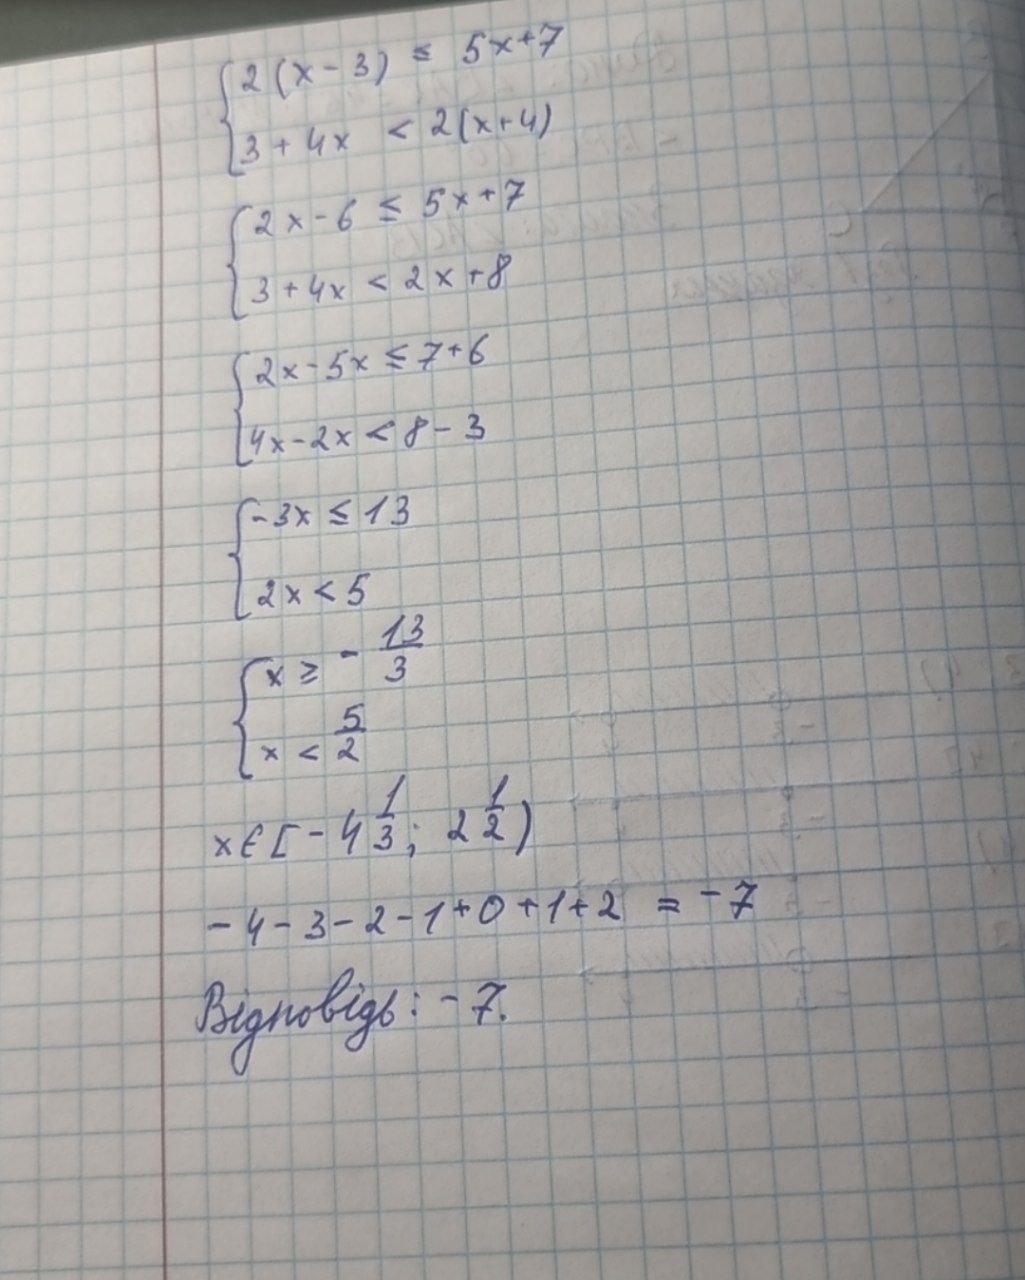 2(x-3) ≤ 5x+7
3+4x < 2(x+4)
2x-6 ≤ 5x+7
3+4x < 2x+8
2x-5x ≤ 7+6
4x-2x < 8-3
-3x ≤ 13
2x < 5
x ≥ -13/3
x < 5/2
x∈[-4 1/3; 2 1/2)
-4-3-2-1+0+1+2 = -7
Відповідь: -7.